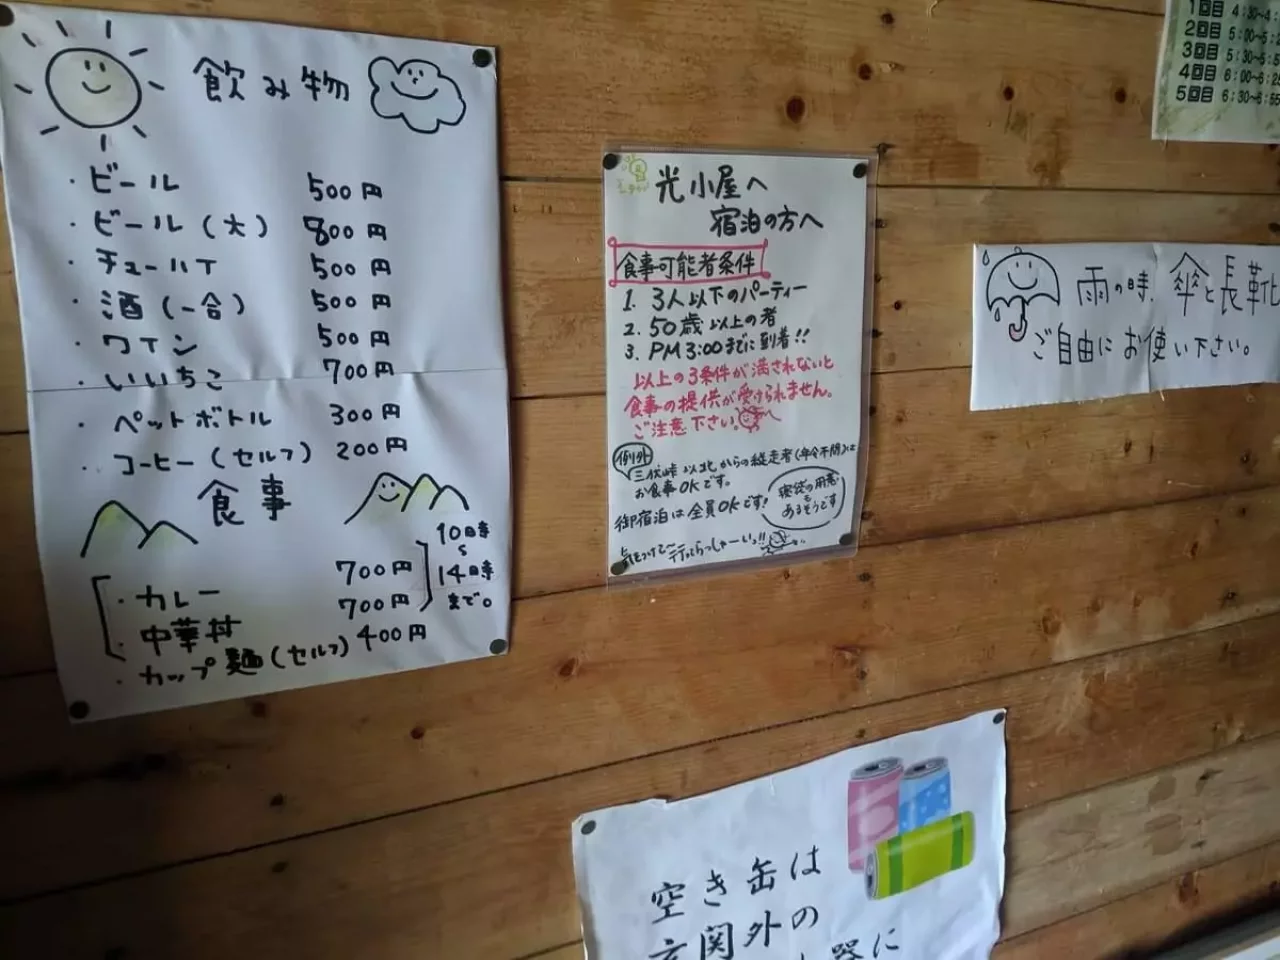 飲み物
・ビール 500円
・ビール(大) 800円
・チューハイ 500円
・酒(一合) 500円
・ワイン 500円
・いいちこ 700円
・ペットボトル 300円
・コーヒー(セルフ) 200円
食事
・カレー 700円
・中華丼 700円
・カップ麺(セルフ) 400円
10時
〜
14時
まで。
光小屋へ
宿泊の方へ
食事可能者条件
1. 3人以下のパーティー
2. 50歳以上の者
3. PM3:00までに到着!!
以上の3条件が満されないと
食事の提供が受けられません。
ご注意下さい。
例外
三伏峠以北からの縦走者(年令不問)は
お食事OKです。
御宿泊は全員OKです!
寝袋の用意
あるそうです
気をつけて〜行ってらっしゃーいっ!!
雨の時、傘と長靴
ご自由にお使い下さい。
1回目 4:30~4:
2回目 5:00~5:2
3回目 5:30~5:5
4回目 6:00~6:25
5回目 6:30~6:55
空き缶は
玄関外の
器に